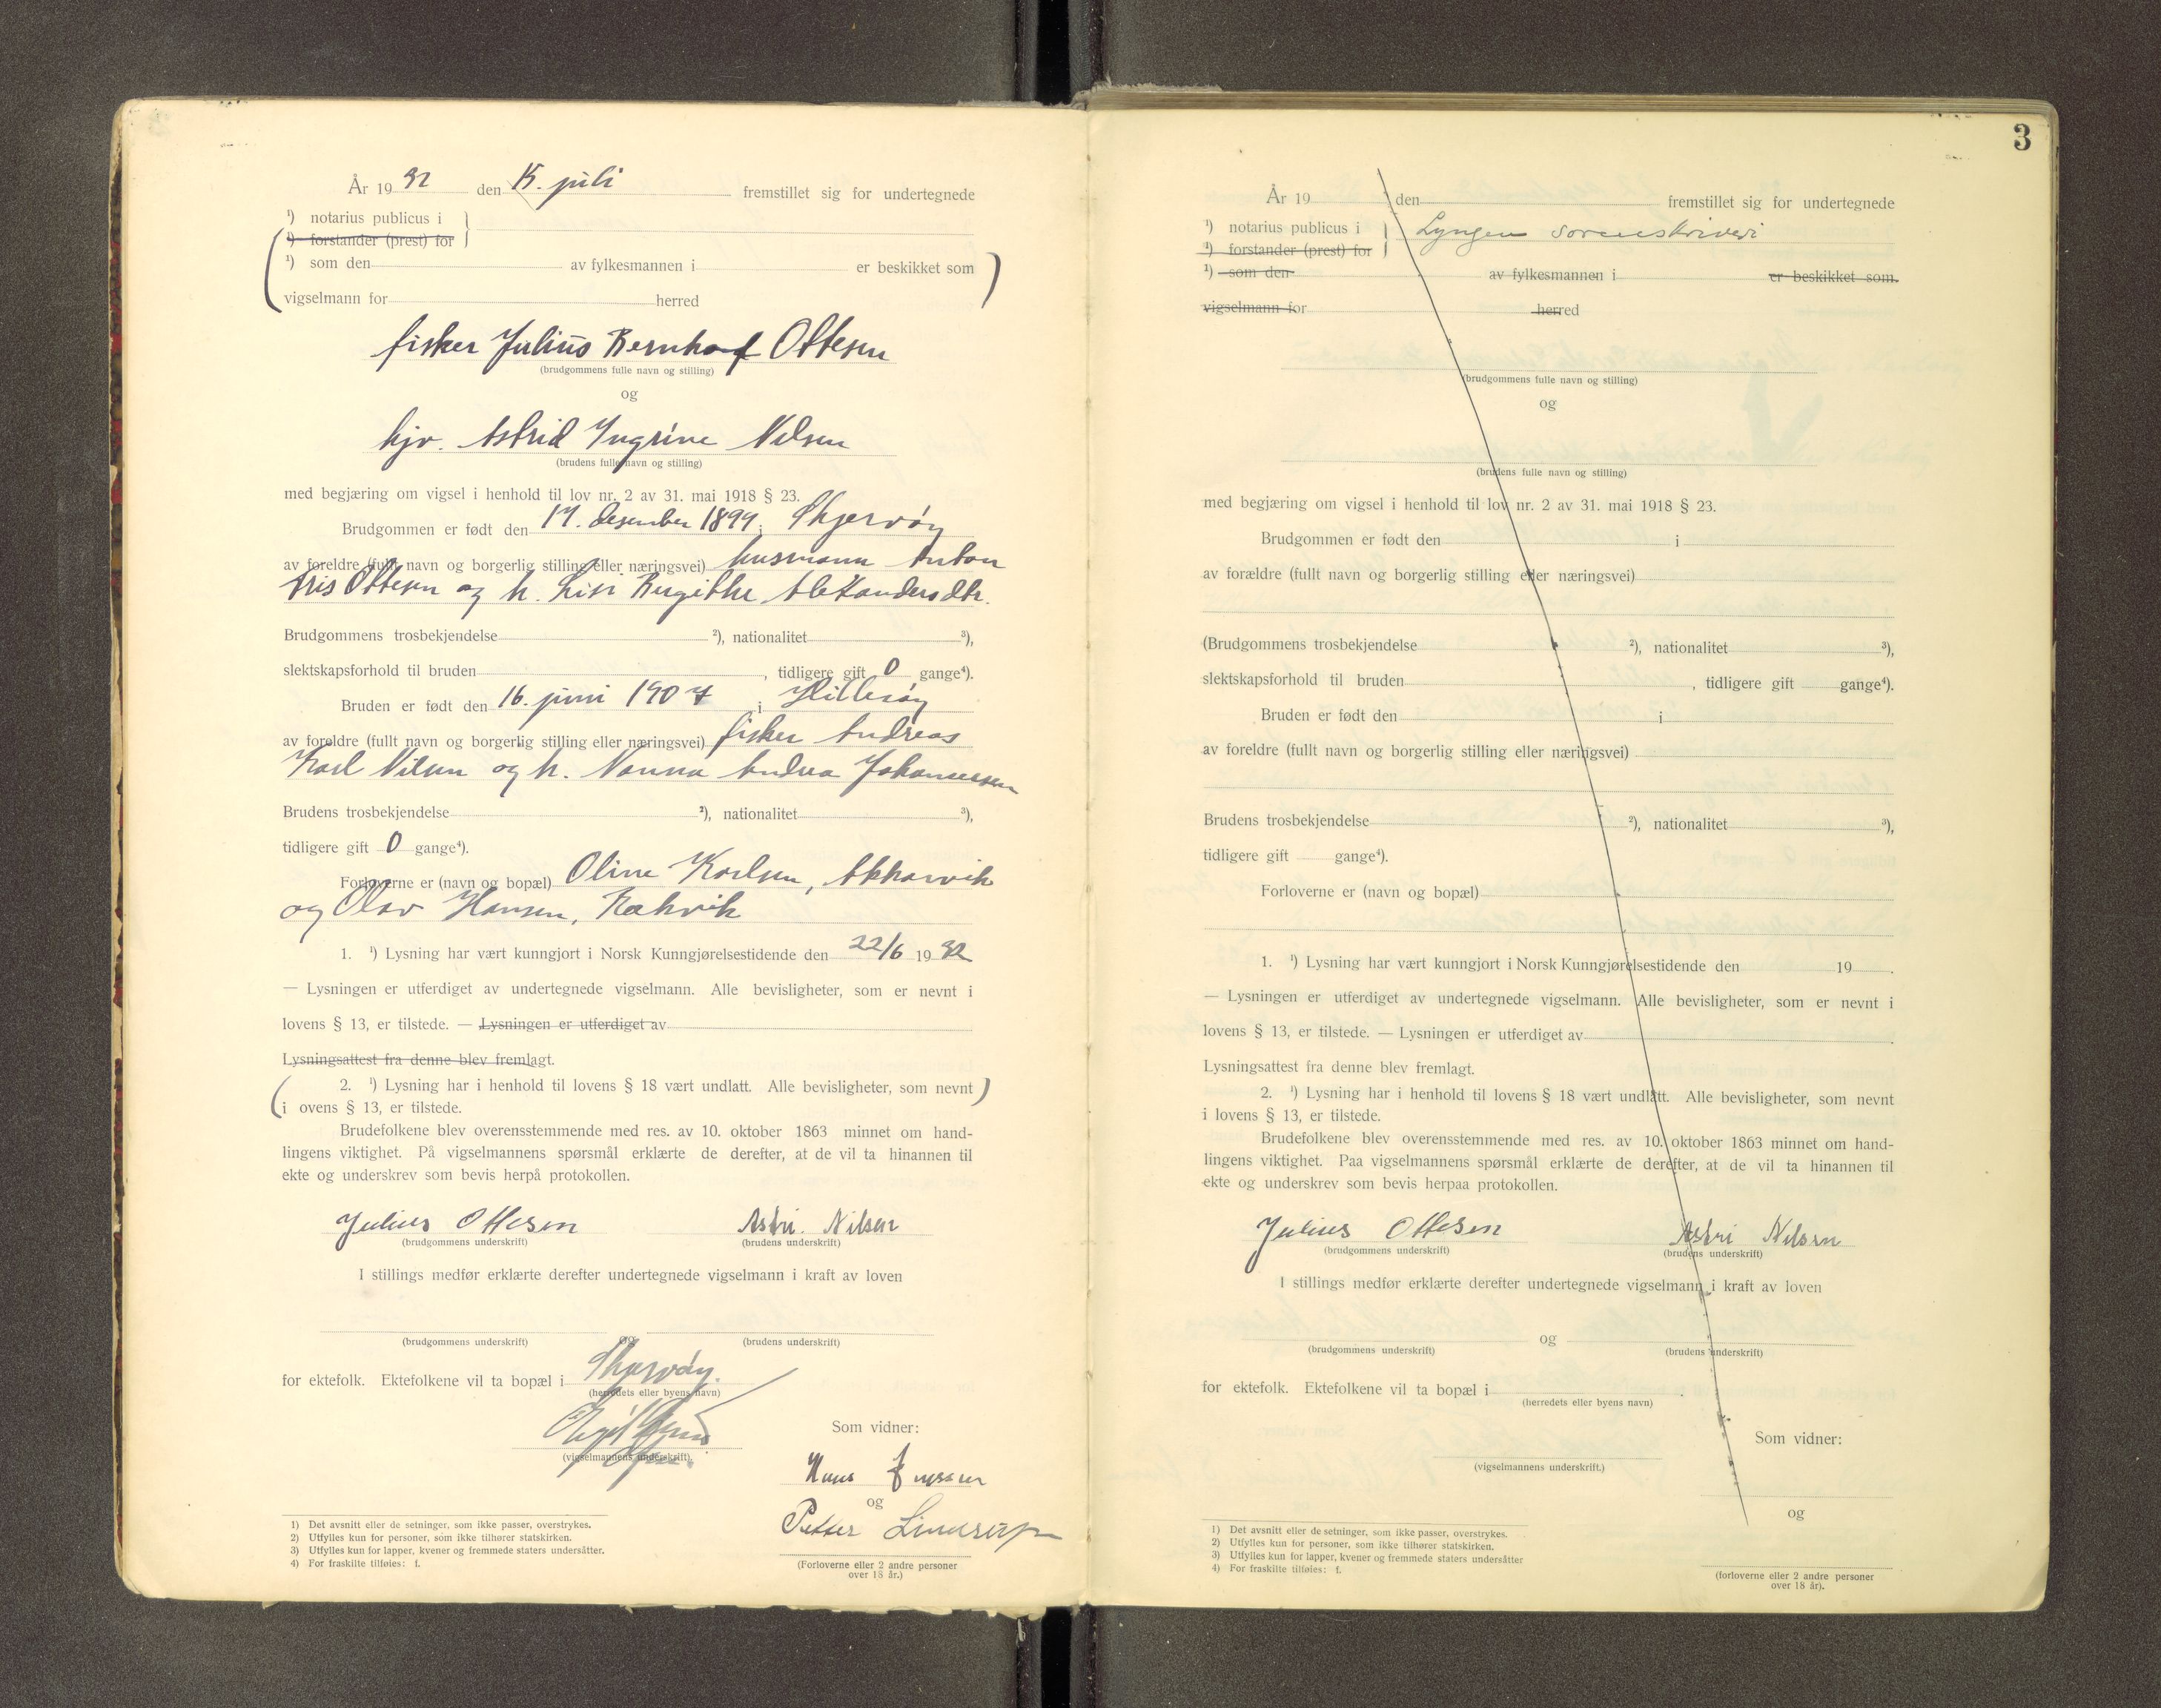 År 19 32 den 15. juli fremstillet sig for undertegnede
¹) notarius publicus i
¹) forstander (prest) for
¹) som den av fylkesmannen i er beskikket som
vigselmann for herred
fisker Julius Bernhof Ottesen
(brudgommens fulle navn og stilling)
og
hjv. Astrid Ingrine Nilsen
(brudens fulle navn og stilling)
med begjæring om vigsel i henhold til lov nr. 2 av 31. mai 1918 § 23.
Brudgommen er født den 17. desember 1899 i Skjervøy
av foreldre (fullt navn og borgerlig stilling eller næringsvei) husmann Anton
Aris Ottesen og h. Lisi Birgithe Aleksandersdtr.
Brudgommens trosbekjendelse ²), nationalitet ³),
slektskapsforhold til bruden , tidligere gift 0 gange⁴).
Bruden er født den 16. juni 1907 i Hillesøy
av foreldre (fullt navn og borgerlig stilling eller næringsvei) fisker Andreas
Karl Nilsen og h. Nanna Andrea Johannessen
Brudens trosbekjendelse ²), nationalitet ³),
tidligere gift 0 gange⁴).
Forloverne er (navn og bopæl) Oline Karlsen, Akkarvik
og Olav Hansen, Rakvik
1. ¹) Lysning har vært kunngjort i Norsk Kunngjørelsestidende den 22/6 19 32
— Lysningen er utferdiget av undertegnede vigselmann. Alle bevisligheter, som er nevnt i
lovens § 13, er tilstede. — Lysningen er utferdiget av
Lysningsattest fra denne blev fremlagt.
2. ¹) Lysning har i henhold til lovens § 18 vært undlatt. Alle bevisligheter, som nevnt
i ovens § 13, er tilstede.
Brudefolkene blev overensstemmende med res. av 10. oktober 1863 minnet om hand-
lingens viktighet. På vigselmannens spørsmål erklærte de derefter, at de vil ta hinannen til
ekte og underskrev som bevis herpå protokollen.
Julius Ottesen Astri. Nilsen
(brudgommens underskrift) (brudens underskrift)
I stillings medfør erklærte derefter undertegnede vigselmann i kraft av loven
og
(brudgommens underskrift) (brudens underskrift)
for ektefolk. Ektefolkene vil ta bopæl i Skjervøy.
(herredets eller byens navn)
Som vidner:
(vigselmannens underskrift).
Hans
og
Petter Lindrup
(Forloverne eller 2 andre personer
over 18 år.)
1) Det avsnitt eller de setninger, som ikke passer, overstrykes.
2) Utfylles kun for personer, som ikke tilhører statskirken.
3) Utfylles kun for lapper, kvener og fremmede staters undersåtter.
4) For fraskilte tilføies: f.
3
År 19 den fremstillet sig for undertegnede
¹) notarius publicus i Lyngen sorenskriveri
¹) forstander (prest) for
¹) som den av fylkesmannen i er beskikket som.
vigselmann for herred
(brudgommens fulle navn og stilling)
og
(brudens fulle navn og stilling)
med begjæring om vigsel i henhold til lov nr. 2 av 31. mai 1918 § 23.
Brudgommen er født den i
av forældre (fullt navn og borgerlig stilling eller næringsvei)
(Brudgommens trosbekjendelse ²), nationalitet ³),
slektskapsforhold til bruden , tidligere gift gange⁴).
Bruden er født den i
av foreldre (fullt navn og borgerlig stilling eller næringsvei)
Brudens trosbekjendelse ²), nationalitet ³),
tidligere gift gange⁴).
Forloverne er (navn og bopæl)
1. ¹) Lysning har vært kunngjort i Norsk Kunngjørelsestidende den 19 .
— Lysningen er utferdiget av undertegnede vigselmann. Alle bevisligheter, som er nevnt i
lovens § 13, er tilstede. — Lysningen er utferdiget av
Lysningsattest fra denne blev fremlagt.
2. ¹) Lysning har i henhold til lovens § 18 vært undlatt. Alle bevisligheter, som nevnt
i lovens § 13, er tilstede.
Brudefolkene blev overensstemmende med res. av 10. oktober 1863 minnet om hand-
lingens viktighet. Paa vigselmannens spørsmål erklærte de derefter, at de vil ta hinannen til
ekte og underskrev som bevis herpaa protokollen.
Julius Ottesen Astri Nilsen
(brudgommens underskrift) (brudens underskrift)
I stillings medfør erklærte derefter undertegnede vigselmann i kraft av loven
og
(brudgommens underskrift) (brudens underskrift)
for ektefolk. Ektefolkene vil ta bopæl i
(herredets eller byens navn)
Som vidner:
(vigselmannens underskrift.)
og
(forloverne eller 2 andre personer
over 18 år).
1) Det avsnitt eller de setninger, som ikke passer, overstrykes.
2) Utfylles kun for personer, som ikke tilhører statskirken.
3) Utfylles kun for lapper, kvener og fremmede staters undersåtter
4) For fraskilte tilføies: f.